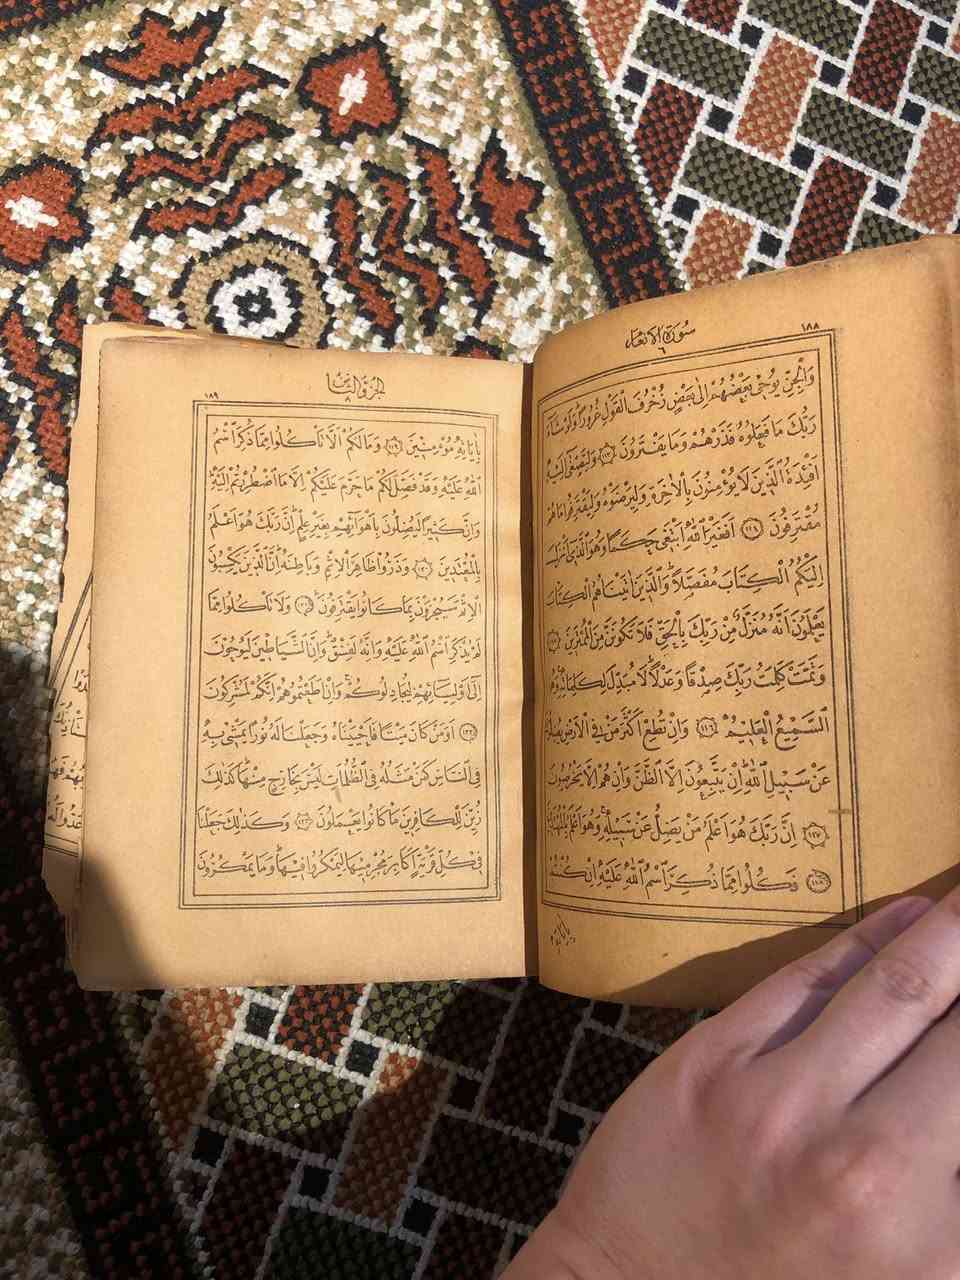 ١٨٨
سورة الانعام
٦
وَالْجِنِّ يُوحِى بَعْضُهُمْ اِلٰى بَعْضٍ زُخْرُفَ الْقَوْلِ غُرُورًا وَلَوْ شَآءَ
رَبُّكَ مَا فَعَلُوهُ فَذَرْهُمْ وَمَا يَفْتَرُونَ ﴿١١٢﴾ وَلِتَصْغٰٓى اِلَيْهِ
اَفْئِدَةُ الَّذِينَ لَا يُؤْمِنُونَ بِالْاٰخِرَةِ وَلِيَرْضَوْهُ وَلِيَقْتَرِفُوا مَا هُمْ
مُقْتَرِفُونَ ﴿١١٣﴾ اَفَغَيْرَ اللّٰهِ اَبْتَغِى حَكَمًا وَهُوَ الَّذِى اَنْزَلَ
اِلَيْكُمُ الْكِتَابَ مُفَصَّلًا وَالَّذِينَ اٰتَيْنَاهُمُ الْكِتَابَ
يَعْلَمُونَ اَنَّهُ مُنَزَّلٌ مِنْ رَبِّكَ بِالْحَقِّ فَلَا تَكُونَنَّ مِنَ الْمُمْتَرِينَ ﴿١١٤﴾
وَتَمَّتْ كَلِمَتُ رَبِّكَ صِدْقًا وَعَدْلًا لَا مُبَدِّلَ لِكَلِمَاتِهِ وَهُوَ
السَّمِيعُ الْعَلِيمُ ﴿١١٥﴾ وَاِنْ تُطِعْ اَكْثَرَ مَنْ فِى الْاَرْضِ يُضِلُّوكَ
عَنْ سَبِيلِ اللّٰهِ اِنْ يَتَّبِعُونَ اِلَّا الظَّنَّ وَاِنْ هُمْ اِلَّا يَخْرُصُونَ
﴿١١٦﴾ اِنَّ رَبَّكَ هُوَ اَعْلَمُ مَنْ يَضِلُّ عَنْ سَبِيلِهِ وَهُوَ اَعْلَمُ بِالْمُهْتَدِينَ
﴿١١٧﴾ فَكُلُوا مِمَّا ذُكِرَ اسْمُ اللّٰهِ عَلَيْهِ اِنْ كُنْتُمْ
بِاٰيَاتِهِ
١٨٩
الجزؤ الثامن
٨
بِاٰيَاتِهِ مُؤْمِنِينَ ﴿١١٨﴾ وَمَا لَكُمْ اَلَّا تَأْكُلُوا مِمَّا ذُكِرَ اسْمُ
اللّٰهِ عَلَيْهِ وَقَدْ فَصَّلَ لَكُمْ مَا حَرَّمَ عَلَيْكُمْ اِلَّا مَا اضْطُرِرْتُمْ اِلَيْهِ
وَاِنَّ كَثِيرًا لَيُضِلُّونَ بِاَهْوَآئِهِمْ بِغَيْرِ عِلْمٍ اِنَّ رَبَّكَ هُوَ اَعْلَمُ
بِالْمُعْتَدِينَ ﴿١١٩﴾ وَذَرُوا ظَاهِرَ الْاِثْمِ وَبَاطِنَهُ اِنَّ الَّذِينَ يَكْسِبُونَ
الْاِثْمَ سَيُجْزَوْنَ بِمَا كَانُوا يَقْتَرِفُونَ ﴿١٢٠﴾ وَلَا تَأْكُلُوا مِمَّا
لَمْ يُذْكَرِ اسْمُ اللّٰهِ عَلَيْهِ وَاِنَّهُ لَفِسْقٌ وَاِنَّ الشَّيَاطِينَ لَيُوحُونَ
اِلٰٓى اَوْلِيَآئِهِمْ لِيُجَادِلُوكُمْ وَاِنْ اَطَعْتُمُوهُمْ اِنَّكُمْ لَمُشْرِكُونَ
﴿١٢١﴾ اَوَمَنْ كَانَ مَيْتًا فَاَحْيَيْنَاهُ وَجَعَلْنَا لَهُ نُورًا يَمْشِى بِهِ
فِى النَّاسِ كَمَنْ مَثَلُهُ فِى الظُّلُمَاتِ لَيْسَ بِخَارِجٍ مِنْهَا كَذٰلِكَ
زُيِّنَ لِلْكَافِرِينَ مَا كَانُوا يَعْمَلُونَ ﴿١٢٢﴾ وَكَذٰلِكَ جَعَلْنَا
فِى كُلِّ قَرْيَةٍ اَكَابِرَ مُجْرِمِيهَا لِيَمْكُرُوا فِيهَا وَمَا يَمْكُرُونَ